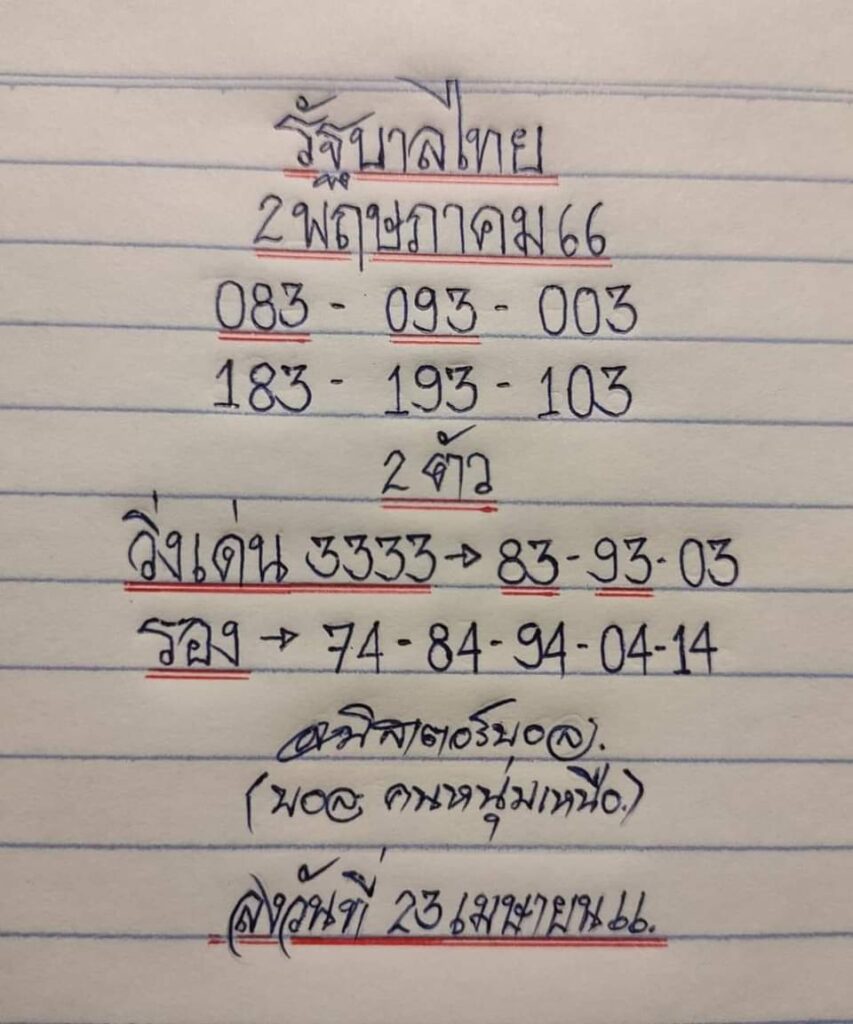 รัฐบาลไทย
2 พฤษภาคม 66
083 - 093 - 003
183 - 193 - 103
2 ตัว
วิ่งเด่น 3333 → 83 - 93 - 03
รอง → 74 - 84 - 94 - 04 - 14
มิสเตอร์บอล.
(บอล คนหนุ่มเหนือ.)
ลงวันที่ 23 เมษายน 66.